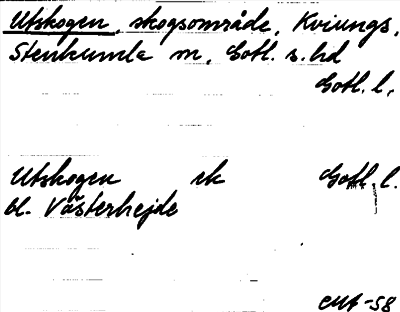 Utskogen, skogsområde, Kviungs,
Stenkumla sn, Gotl. s. hd
Gotl. l.
Utskogen sk Gotl. l.
bl. Västerhejde
EMA-58